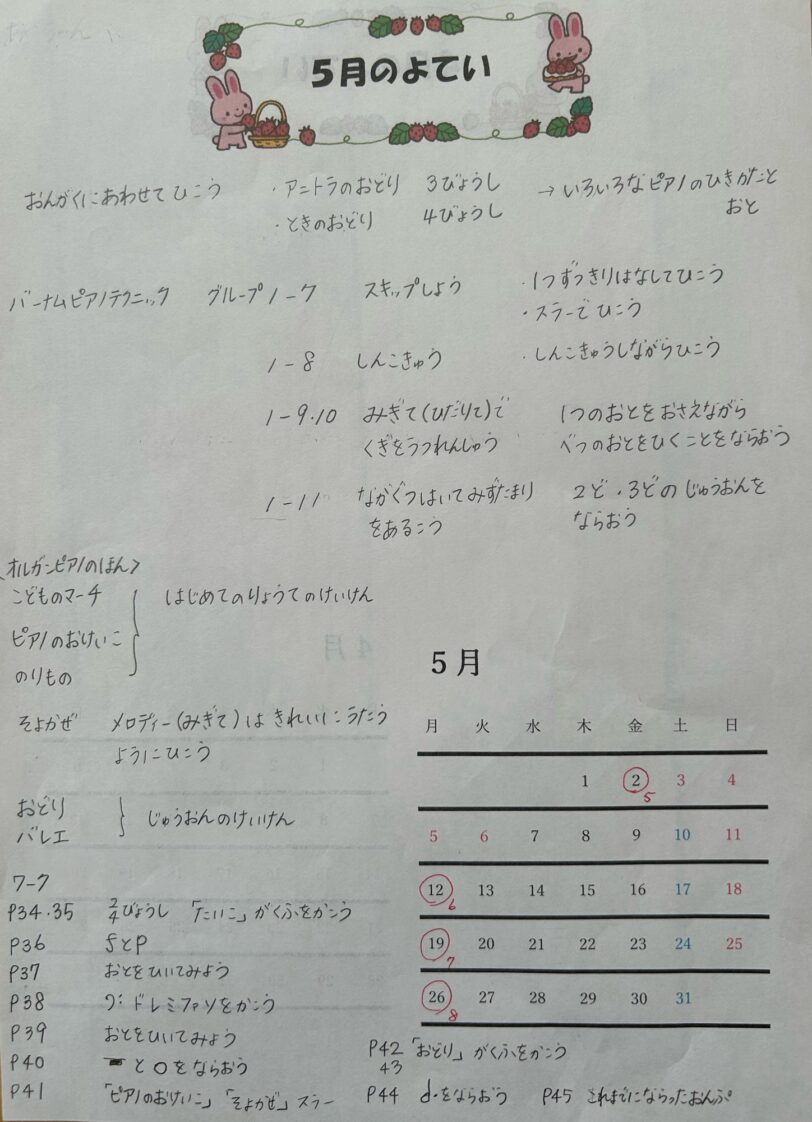 5月のよてい
おんがくにあわせて ひこう ・アニトラのおどり 3びょうし → いろいろな ピアノのひきかたと
・ときのおどり 4びょうし おと
バーナムピアノテクニック グループ1-7 スキップしよう ・1つずつきりはなしてひこう
・スラーで ひこう
1-8 しんこきゅう ・しんこきゅうしながらひこう
1-9.10 みぎて(ひだりて)で 1つのおとをおさえながら
くぎをうつれんしゅう べつのおとをひくことをならおう
1-11 ながぐつはいてみずたまり 2ど・3どの じゅうおんを
をあるこう ならおう
<オルガンピアノのほん>
こどものマーチ はじめてのりょうてのけいけん
ピアノのおけいこ
のりもの
そよかぜ メロディー(みぎて)は きれいにうたう
ようにひこう
おどり じゅうおんのけいけん
バレエ
ワーク
P34.35 2/4びょうし 「たいこ」がくふをかこう
P36 fとp
P37 おとをひいてみよう
P38 𝄢: ドレミファソをかこう
P39 おとをひいてみよう
P40 𝄻と𝅝をならおう
P41 「ピアノのおけいこ」「そよかぜ」スラー
5月
月 火 水 木 金 土 日
1 2 3 4
5
5 6 7 8 9 10 11
12 13 14 15 16 17 18
6
19 20 21 22 23 24 25
7
26 27 28 29 30 31
8
P42 「おどり」がくふをかこう
43
P44 𝅗𝅥.をならおう P45 これまでにならったおんぷ